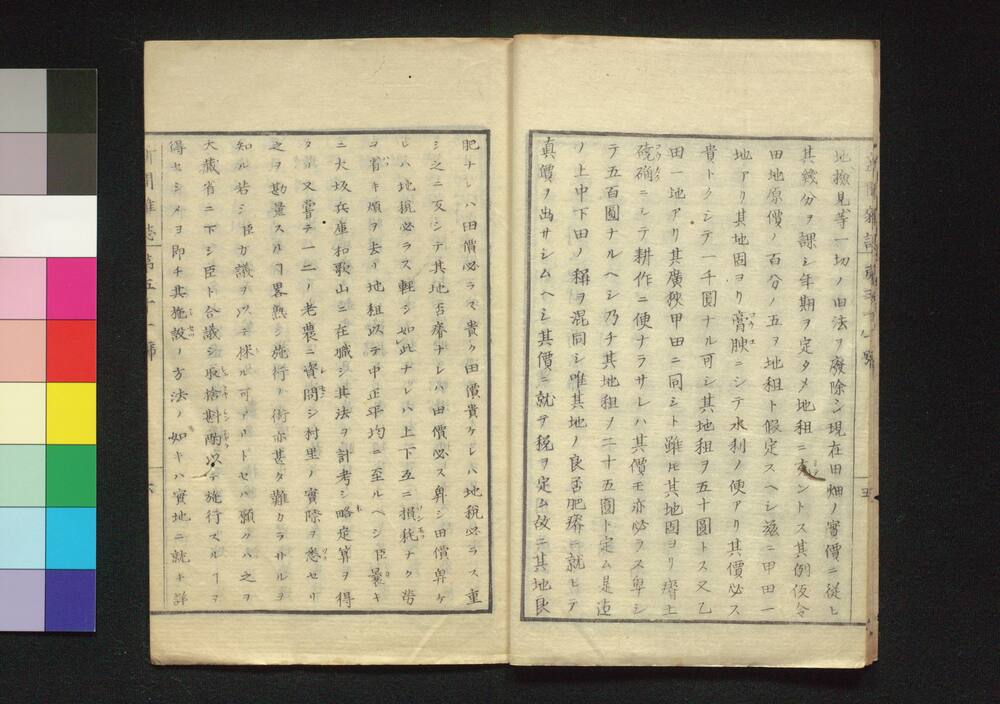 地撿見等一切ノ旧法ヲ廢除シ現在田畑ノ實價ニ從ヒ
其幾分ヲ課シ年期ヲ定タメ地租ニ充ントス其例仮令
田地原價ノ百分ノ五ヲ地租ト假定スヘシ茲ニ甲田一
地アリ其地固ヨリ膏腴ニシテ水利ノ便アリ其價必ス
貴トクシテ一千圓ナル可シ其地租ヲ五十圓トス又乙
田一地アリ其廣狹甲田ニ同シト雖㆑其地固ヨリ瘠土
磽确ニシテ耕作ニ便ナラサレハ其價モ亦必ラス卑シ
テ五百圓ナルヘシ乃チ其地租ヲ二十五圓ト定ム是迠
ノ上中下田ノ稱ヲ混同シ唯其地ノ良否肥瘠ニ就ヒテ
眞價ヲ出サシムヘシ其價ニ就テ稅ヲ定ム故ニ其地良
五
肥ナレハ田價必ラス貴ク田價貴ケレハ地稅必ラス重
シ之ニ反シテ其地否瘠ナレハ田價必ス卑シ田價卑ケ
レハ地稅必ラス輕シ如此ナレハ上下互ニ損耗ナク勞
ヲ省キ煩ヲ去リ地租以テ中正平均ニ至ルヘシ臣曩キ
ニ大坂兵庫和歌山ニ在職シ其法ヲ計考シ略定算ヲ得
タリ又嘗テ一二ノ老農ニ資問シ村里ノ實際ヲ悉セリ
之ヲ勘量スルヿ畧熟シ施行ノ術亦甚タ難カラサルヲ
知ル若シ臣カ議ヲ以テ採ル可アリトセハ願クハ之ヲ
大藏省ニ下シ臣ト合議シ取捨斟酌以テ施行スルヿヲ
得セシメヨ即チ其施設ノ方法ノ如キハ實地ニ就キ詳
新聞雜誌 第五十一號
六